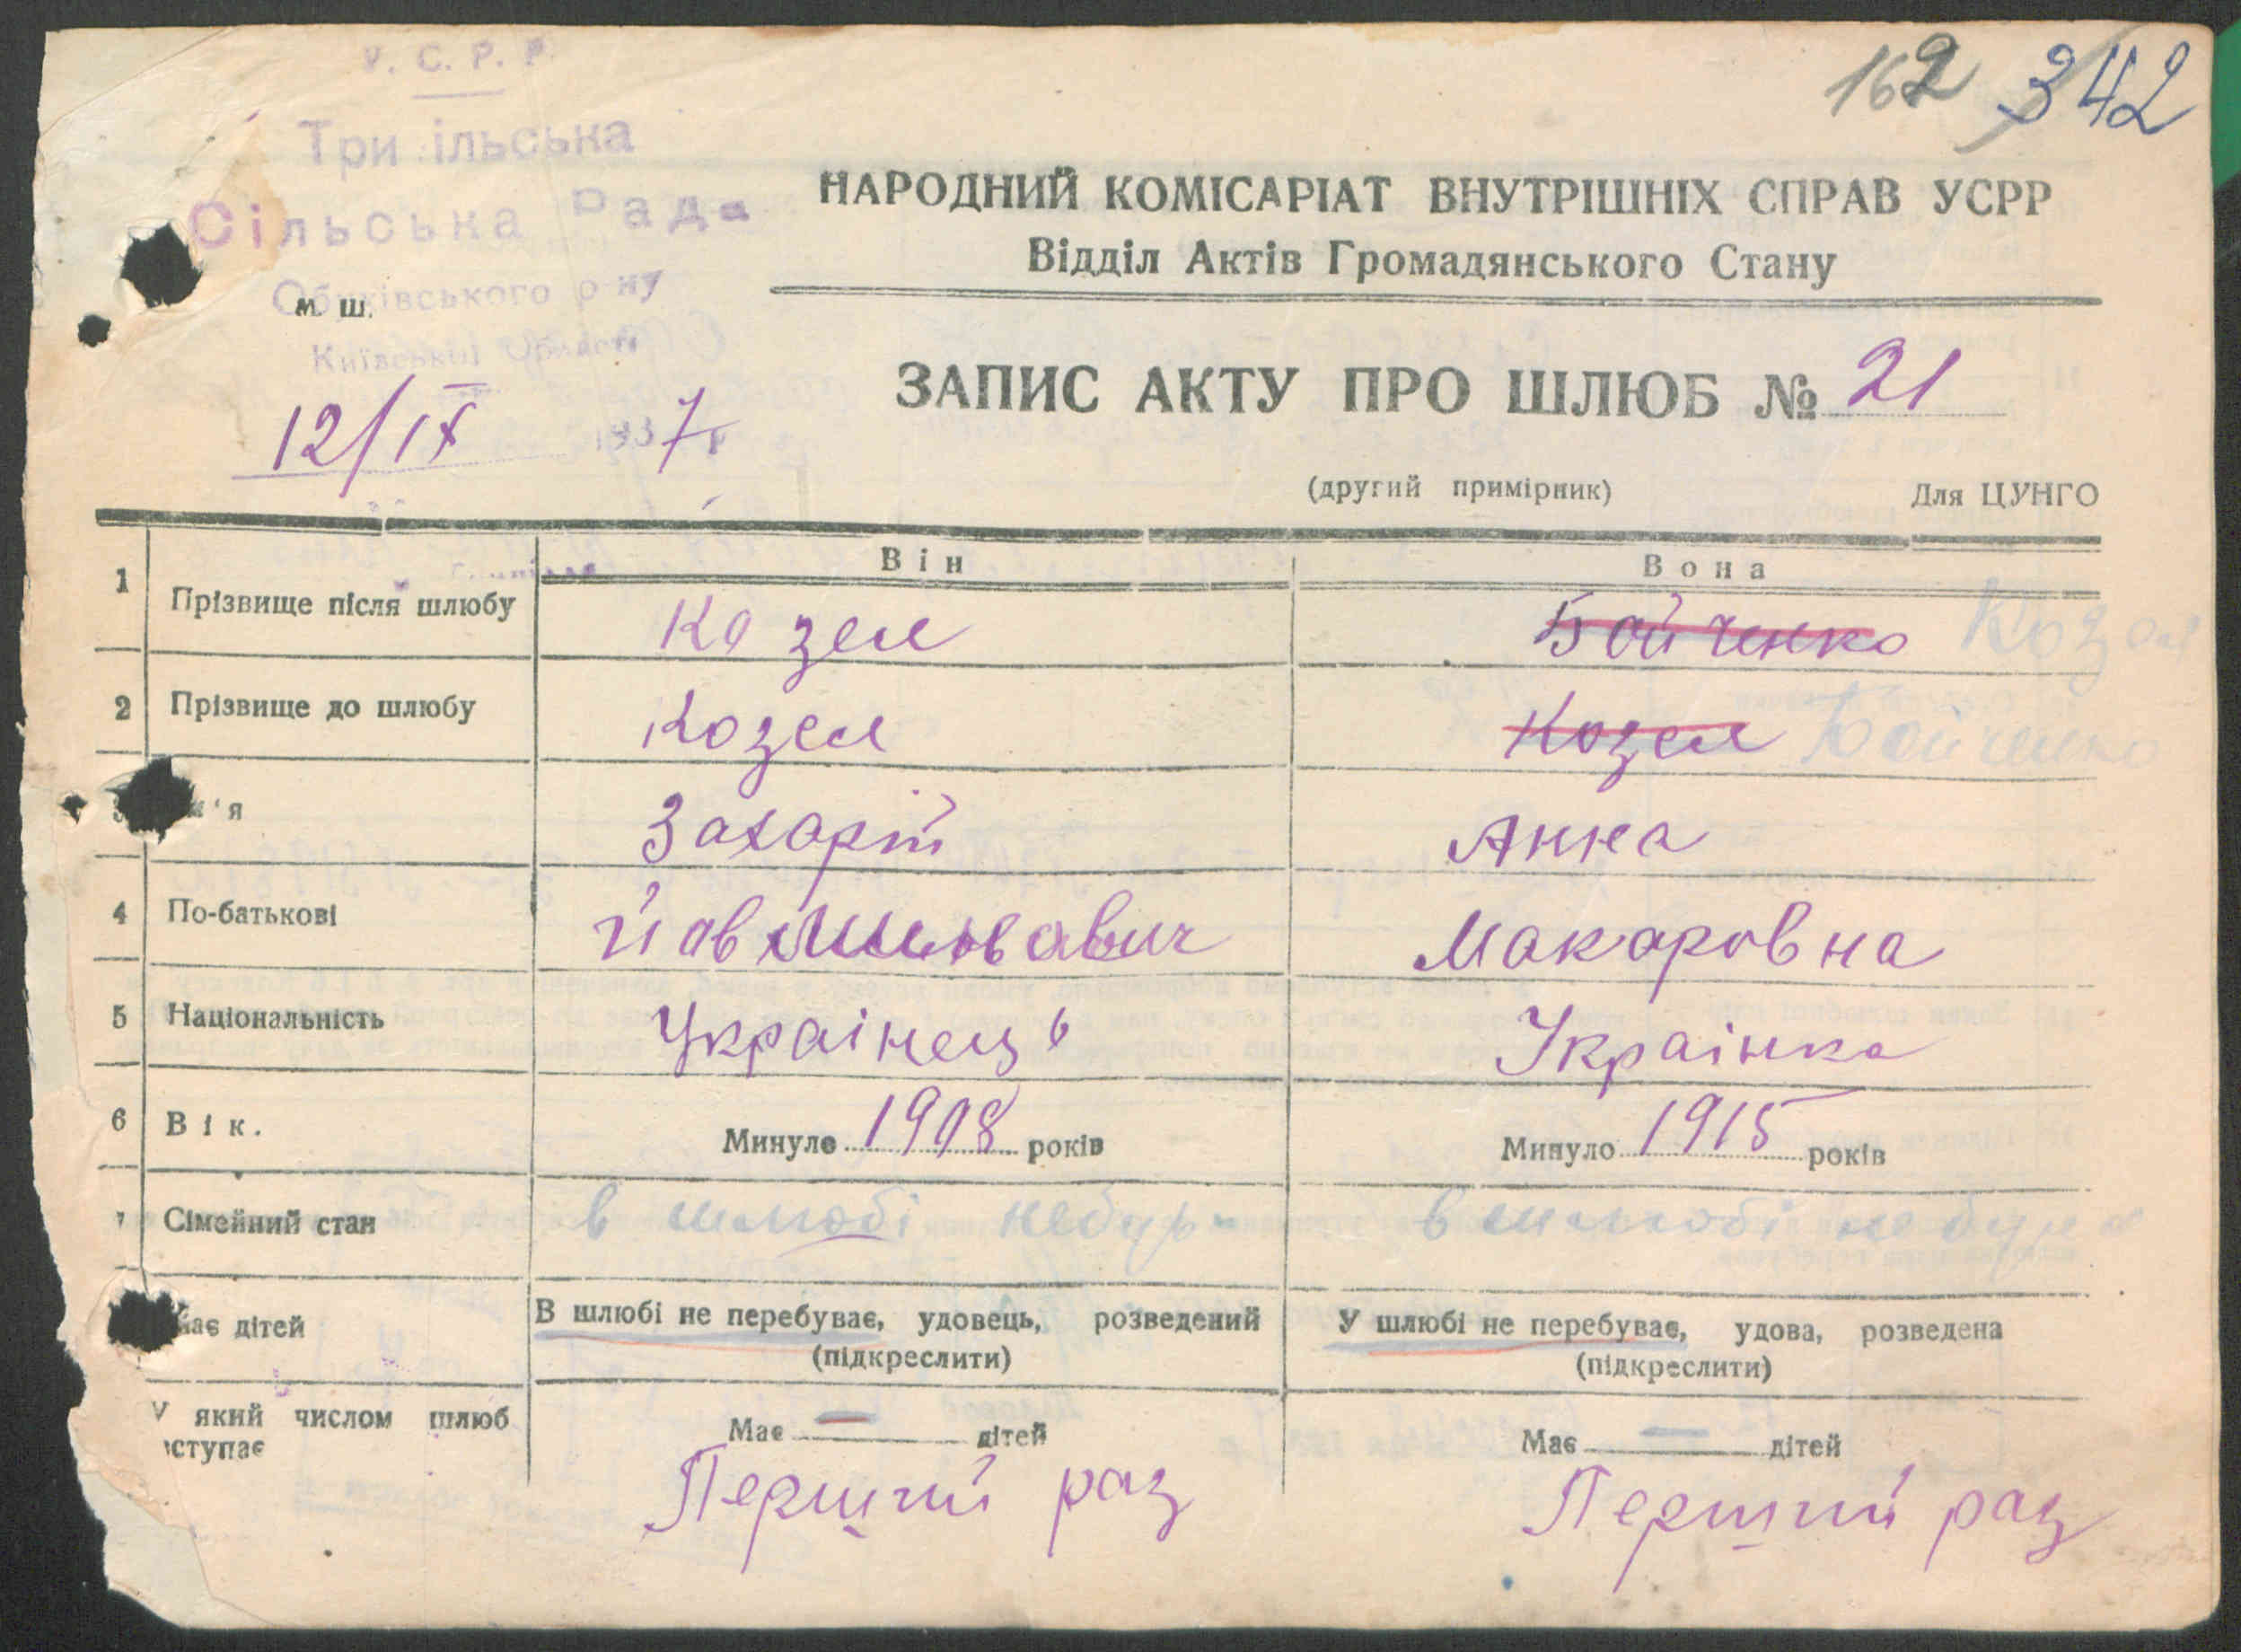 У. С. Р. Р.
Трипільська
Сільська Рада
Обухівського р-ну
Київської Області
М. Ш.
12/IX 1937 р
162 342
НАРОДНИЙ КОМІСАРІАТ ВНУТРІШНІХ СПРАВ УСРР
Відділ Актів Громадянського Стану
ЗАПИС АКТУ ПРО ШЛЮБ № 21
(другий примірник) Для ЦУНГО
Він Вона
1 Прізвище після шлюбу Козел Бойченко Козел
2 Прізвище до шлюбу Козел Козел Бойченко
м'я Захарій Анна
4 По-батькові Макаровна
5 Національність Українець Українка
6 Вік. Минуло 1908 років Минуло 1915 років
7 Сімейний стан в шлюбі небув в шлюбі небула
має дітей В шлюбі не перебуває, удовець, розведений У шлюбі не перебуває, удова, розведена
(підкреслити) (підкреслити)
У який числом шлюб
вступає
Має — дітей Має — дітей
Перший раз Перший раз